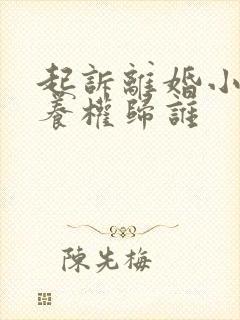 起訴離婚小
養權歸誰
陳先梅